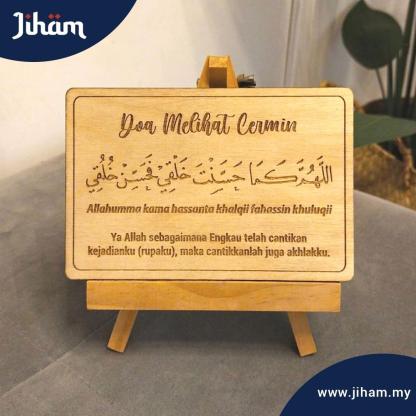 Jihäm
Doa Melihat Cermin
اللَّهُمَّ كَمَا حَسَّنْتَ خَلْقِيْ فَحَسِّنْ خُلُقِي
Allahumma kama hassanta khalqii fahassin khuluqii
Ya Allah sebagaimana Engkau telah cantikan
kejadianku (rupaku), maka cantikkanlah juga akhlakku.
www.jiham.my